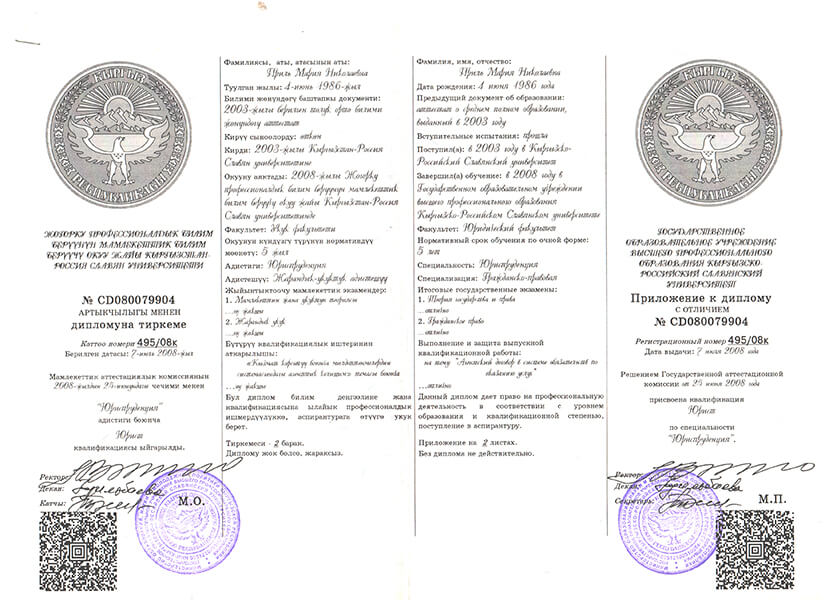 КЫРГЫЗ
РЕСПУБЛИКАСЫ
ЖОГОРКУ ПРОФЕССИОНАЛДЫК БИЛИМ
БЕРҮҮНҮН МАМЛЕКЕТТИК БИЛИМ
БЕРҮҮЧҮ ОКУУ ЖАЙЫ КЫРГЫЗСТАН-
РОССИЯ СЛАВЯН УНИВЕРСИТЕТИ
№ CD080079904
АРТЫКЧЫЛЫГЫ МЕНЕН
дипломуна тиркеме
Каттоо номери 495/08к
Берилген датасы: 7-июль 2008-жыл
Мамлекеттик аттестациялык комиссиянын
2008-жылдын 24-июнундагы чечими менен
"Юриспруденция"
адистиги боюнча
Юрист
квалификациясы ыйгарылды.
Ректор:
Декан:
Катчы:
М.О.
Фамилиясы, аты, атасынын аты:
Приль Мария Николаевна
Туулган жылы: 4-июнь 1986-жыл
Билими жөнүндөгү баштапкы документи:
2003-жылы берилген толук орто билими
жөнүндөгү аттестат
Кирүү сыноолорду: өткөн
Кирди: 2003-жылы Кыргызстан-Россия
Славян университетине
Окууну аяктады: 2008-жылы Жогорку
профессионалдык билим берүүнүн мамлекеттик
билим берүүчү окуу жайы Кыргызстан-Россия
Славян университетинде
Факультет: Укук факультети
Окуунун күндүзгү түрүнүн нормативдүү
мөөнөтү: 5 жыл
Адистиги: Юриспруденция
Адистешүү: Жарандык-укуктук адистешүү
Жыйынтыктоочу мамлекеттик экзамендер:
1. Мамлекеттин жана укуктун теориясы
...эң жакшы
2. Жарандык укук
...эң жакшы
Бүтүрүү квалификациялык иштеринин
аткарылышы:
...эң жакшы
Бул диплом билим деңгээлине жана
квалификациясына ылайык профессионалдык
ишмердүүлүккө, аспирантурага өтүүгө укук
берет.
Тиркемеси - 2 барак.
Диплому жок болсо, жараксыз.
Фамилия, имя, отчество:
Приль Мария Николаевна
Дата рождения: 4 июня 1986 года
Предыдущий документ об образовании:
аттестат о среднем полном образовании,
выданный в 2003 году
Вступительные испытания: прошла
Поступил(а): в 2003 году в Кыргызско-
Российский Славянский университет
Завершил(а) обучение: в 2008 году в
Государственном образовательном учреждении
высшего профессионального образования
Кыргызско-Российском Славянском университете
Факультет: Юридический факультет
Нормативный срок обучения по очной форме:
5 лет
Специальность: Юриспруденция
Специализация: Гражданско-правовая
Итоговые государственные экзамены:
1. Теория государства и права
...отлично
2. Гражданское право
...отлично
Выполнение и защита выпускной
квалификационной работы:
на тему "Агентский договор в системе обязательств по
оказанию услуг"
...отлично
Данный диплом дает право на профессиональную
деятельность в соответствии с уровнем
образования и квалификационной степенью,
поступление в аспирантуру.
Приложение на 2 листах.
Без диплома не действительно.
КЫРГЫЗ
РЕСПУБЛИКАСЫ
ГОСУДАРСТВЕННОЕ
ОБРАЗОВАТЕЛЬНОЕ УЧРЕЖДЕНИЕ
ВЫСШЕГО ПРОФЕССИОНАЛЬНОГО
ОБРАЗОВАНИЯ КЫРГЫЗСКО-
РОССИЙСКИЙ СЛАВЯНСКИЙ
УНИВЕРСИТЕТ
Приложение к диплому
С ОТЛИЧИЕМ
№ CD080079904
Регистрационный номер 495/08к
Дата выдачи: 7 июля 2008 года
Решением Государственной аттестационной
комиссии от 24 июня 2008 года
присвоена квалификация
Юрист
по специальности
"Юриспруденция".
Ректор:
Декан:
Секретарь:
М.П.